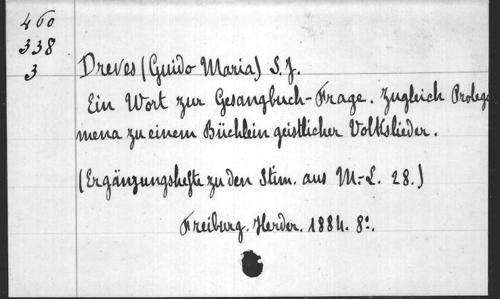 460
338
3
Dreves (Guido Maria) S. J.
Ein Wort zur Gesangbuch-Frage. Zugleich Prolego
mena zu einem Büchlein geistlicher Volkslieder.
(Ergänzungshefte zu den Stim. aus M.-L. 28.)
Freiburg. Herder. 1884. 8º.